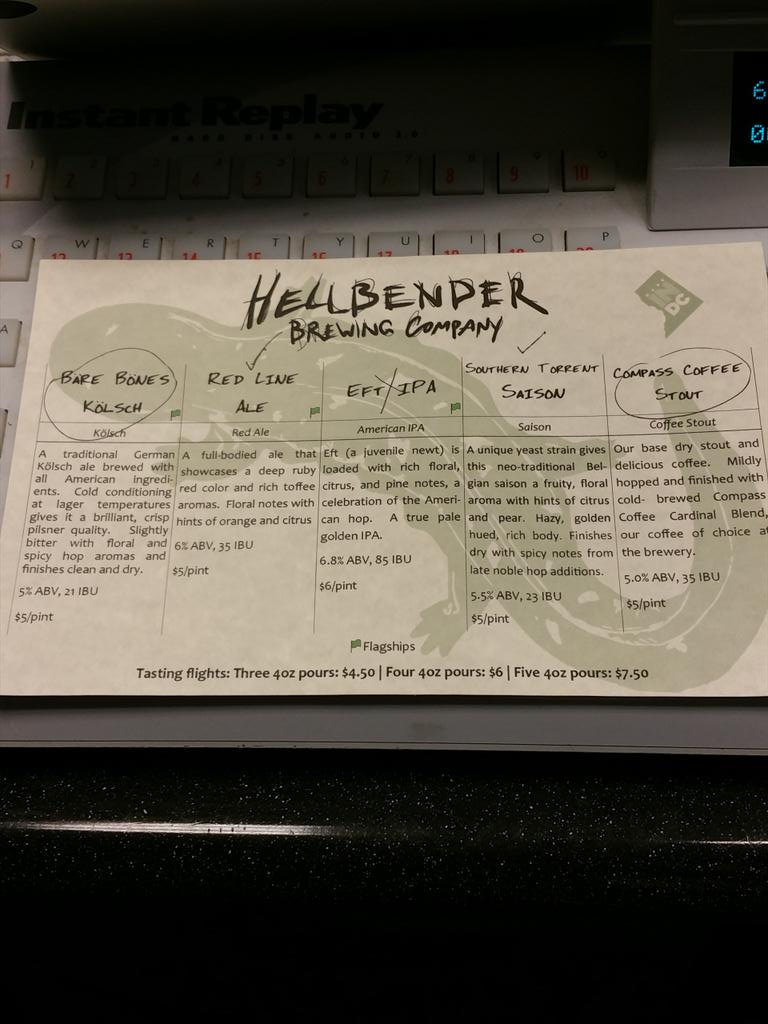 Instant Replay
HARD DISK AUDIO 2.0
6
0
1 2 3 4 5 6 7 8 9 10
Q W E R T Y U I O P
A
HELLBENDER
BREWING COMPANY
IN DC
BARE BONES
KÖLSCH
Kölsch
A traditional German
Kölsch ale brewed with
all American ingredi-
ents. Cold conditioning
at lager temperatures
gives it a brilliant, crisp
pilsner quality. Slightly
bitter with floral and
spicy hop aromas and
finishes clean and dry.
5% ABV, 21 IBU
$5/pint
RED LINE
ALE
Red Ale
A full-bodied ale that
showcases a deep ruby
red color and rich toffee
aromas. Floral notes with
hints of orange and citrus
6% ABV, 35 IBU
$5/pint
EFT IPA
American IPA
Eft (a juvenile newt) is
loaded with rich floral,
citrus, and pine notes, a
celebration of the Ameri-
can hop. A true pale
golden IPA.
6.8% ABV, 85 IBU
$6/pint
SOUTHERN TORRENT
SAISON
Saison
A unique yeast strain gives
this neo-traditional Bel-
gian saison a fruity, floral
aroma with hints of citrus
and pear. Hazy, golden
hued, rich body. Finishes
dry with spicy notes from
late noble hop additions.
5.5% ABV, 23 IBU
$5/pint
COMPASS COFFEE
STOUT
Coffee Stout
Our base dry stout and
delicious coffee. Mildly
hopped and finished with
cold- brewed Compass
Coffee Cardinal Blend,
our coffee of choice at
the brewery.
5.0% ABV, 35 IBU
$5/pint
Flagships
Tasting flights: Three 4oz pours: $4.50 | Four 4oz pours: $6 | Five 4oz pours: $7.50